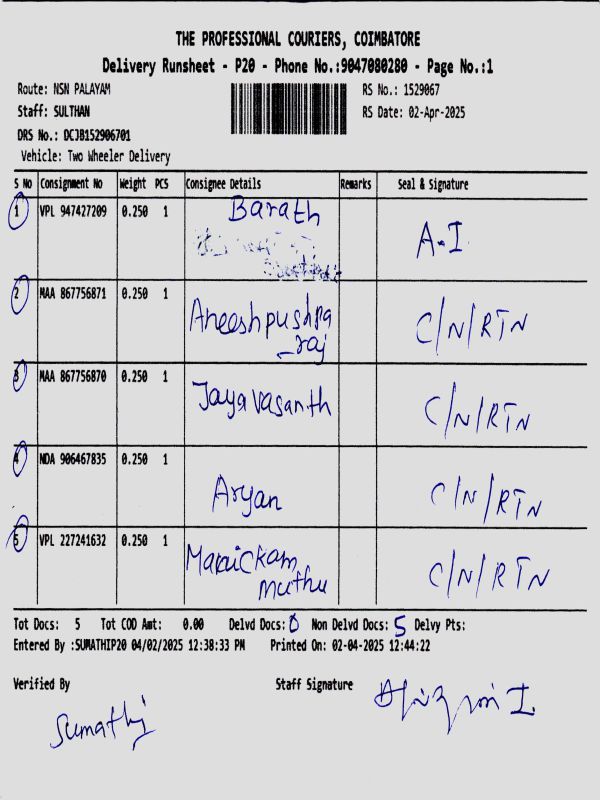 THE PROFESSIONAL COURIERS, COIMBATORE
Delivery Runsheet - P20 - Phone No.:9047080280 - Page No.:1
Route: NSN PALAYAM RS No.: 1529067
Staff: SULTHAN RS Date: 02-Apr-2025
DRS No.: DCJB152906701
Vehicle: Two Wheeler Delivery
S No Consignment No Weight PCS Consignee Details Remarks Seal & Signature
1 VPL 947427209 0.250 1 Barath A.I.
2 MAA 867756871 0.250 1 Aneeshpushpa C/N/RTN
raj
3 MAA 867756870 0.250 1 Jayavasanth C/N/RTN
4 NDA 906467835 0.250 1 Aryan C/N/RTN
5 VPL 227241632 0.250 1 Manickam C/N/RTN
muthu
Tot Docs: 5 Tot COD Amt: 0.00 Delvd Docs: 0 Non Delvd Docs: 5 Delvy Pts:
Entered By :SUMATHIP20 04/02/2025 12:38:33 PM Printed On: 02-04-2025 12:44:22
Verified By Staff Signature
Sumathi